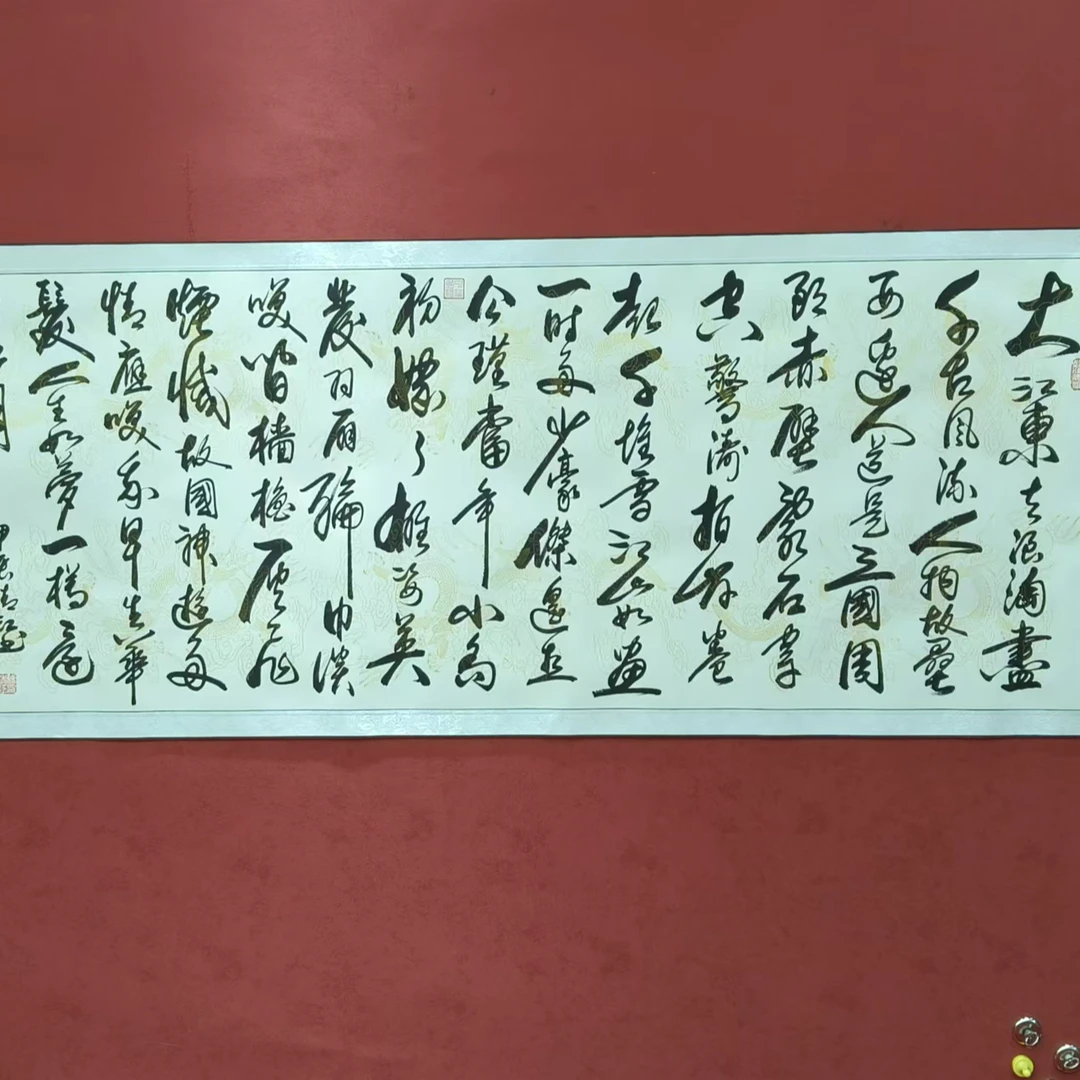 大江東去浪淘盡
千古風流人物故壘
西邊人道是三國周
郎赤壁亂石穿
空驚濤拍岸卷
起千堆雪江山如畫
一時多少豪傑遙想
公瑾當年小喬
初嫁了雄姿英
發羽扇綸巾談
笑間檣櫓灰飛
煙滅故國神遊多
情應笑我早生華
髮人生如夢一樽還
江月
甲辰